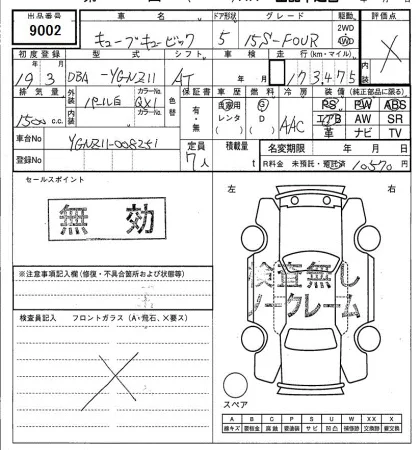 出品番号 車名 ドア形状 グレード 駆動 評価点
9002 キューブキュービック 5 15S-FOUR 2WD 4WD
初度登録 型式 シフト 車検 走行(km・マイル)
19年3月 DBA-YGNZ11 AT 年 月 173475
排気量 外装 カラーNo. 色替 保証書 車歴 燃料 冷房 装備(純正部品に限る)
1500c.c. パール白 QX1 有・無 自家用 レンタ G D AAC PS PW ABS
内装 カラーNo. エアB AW SR
革 ナビ TV
車台No YGNZ11-008251 定員 積載量 名変期限 年 月 日
登録No 7人 t R料金 未預託・預託済 10570円
セールスポイント 左 右
無効
※注意事項記入欄(修復・不具合箇所および状態等)
検査無し
ノークレーム
検査員記入 フロントガラス(A・飛石、×要ス)
スペア
A B C P S U W X XX
線キズ 要板金 腐蝕 要塗装 サビ 凹凸 補修跡 交換跡 要交換